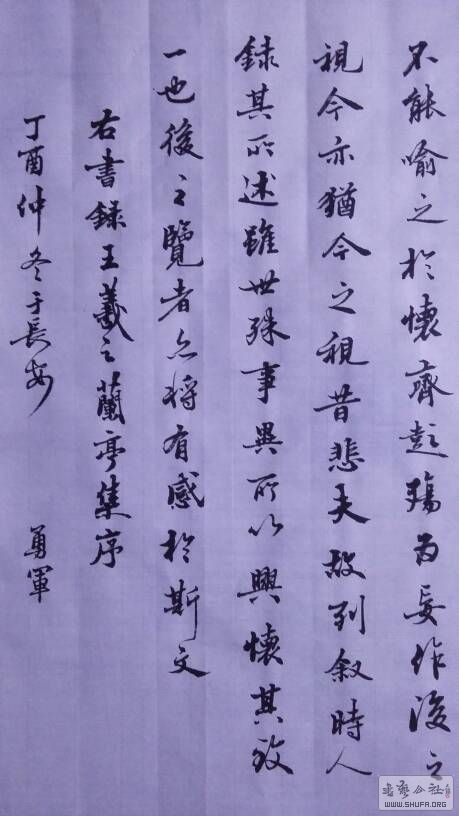 不能喻之於懷齊彭殤為妄作後之
視今亦猶今之視昔悲夫故列叙時人
録其所述雖世殊事異所以興懷其致
一也後之覽者亦將有感於斯文
右書録王羲之蘭亭集序
丁酉仲冬于長安
勇軍
書藝公社
WWW.SHUFA.ORG